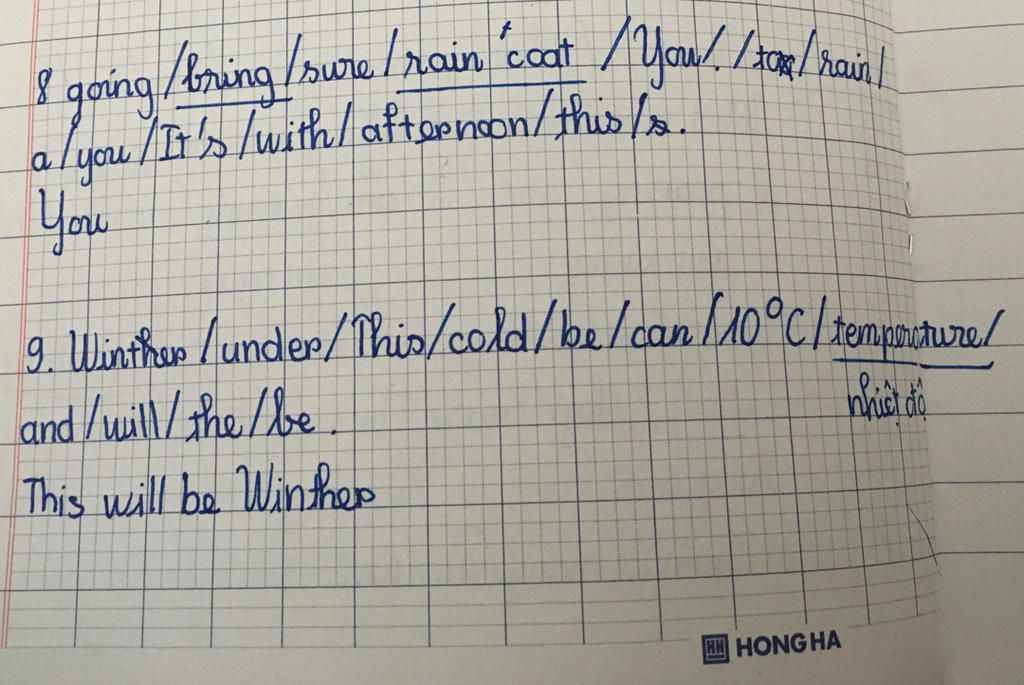 8 going/bring/sure/rain coat /You/. /to/rain/
a/you/It's/with/afternoon/this/s.
You
9. Winther/under/This/cold/be/can/10°C/temperature/
nhiệt độ
and/will/the/be.
This will be Winther
HH HONG HA